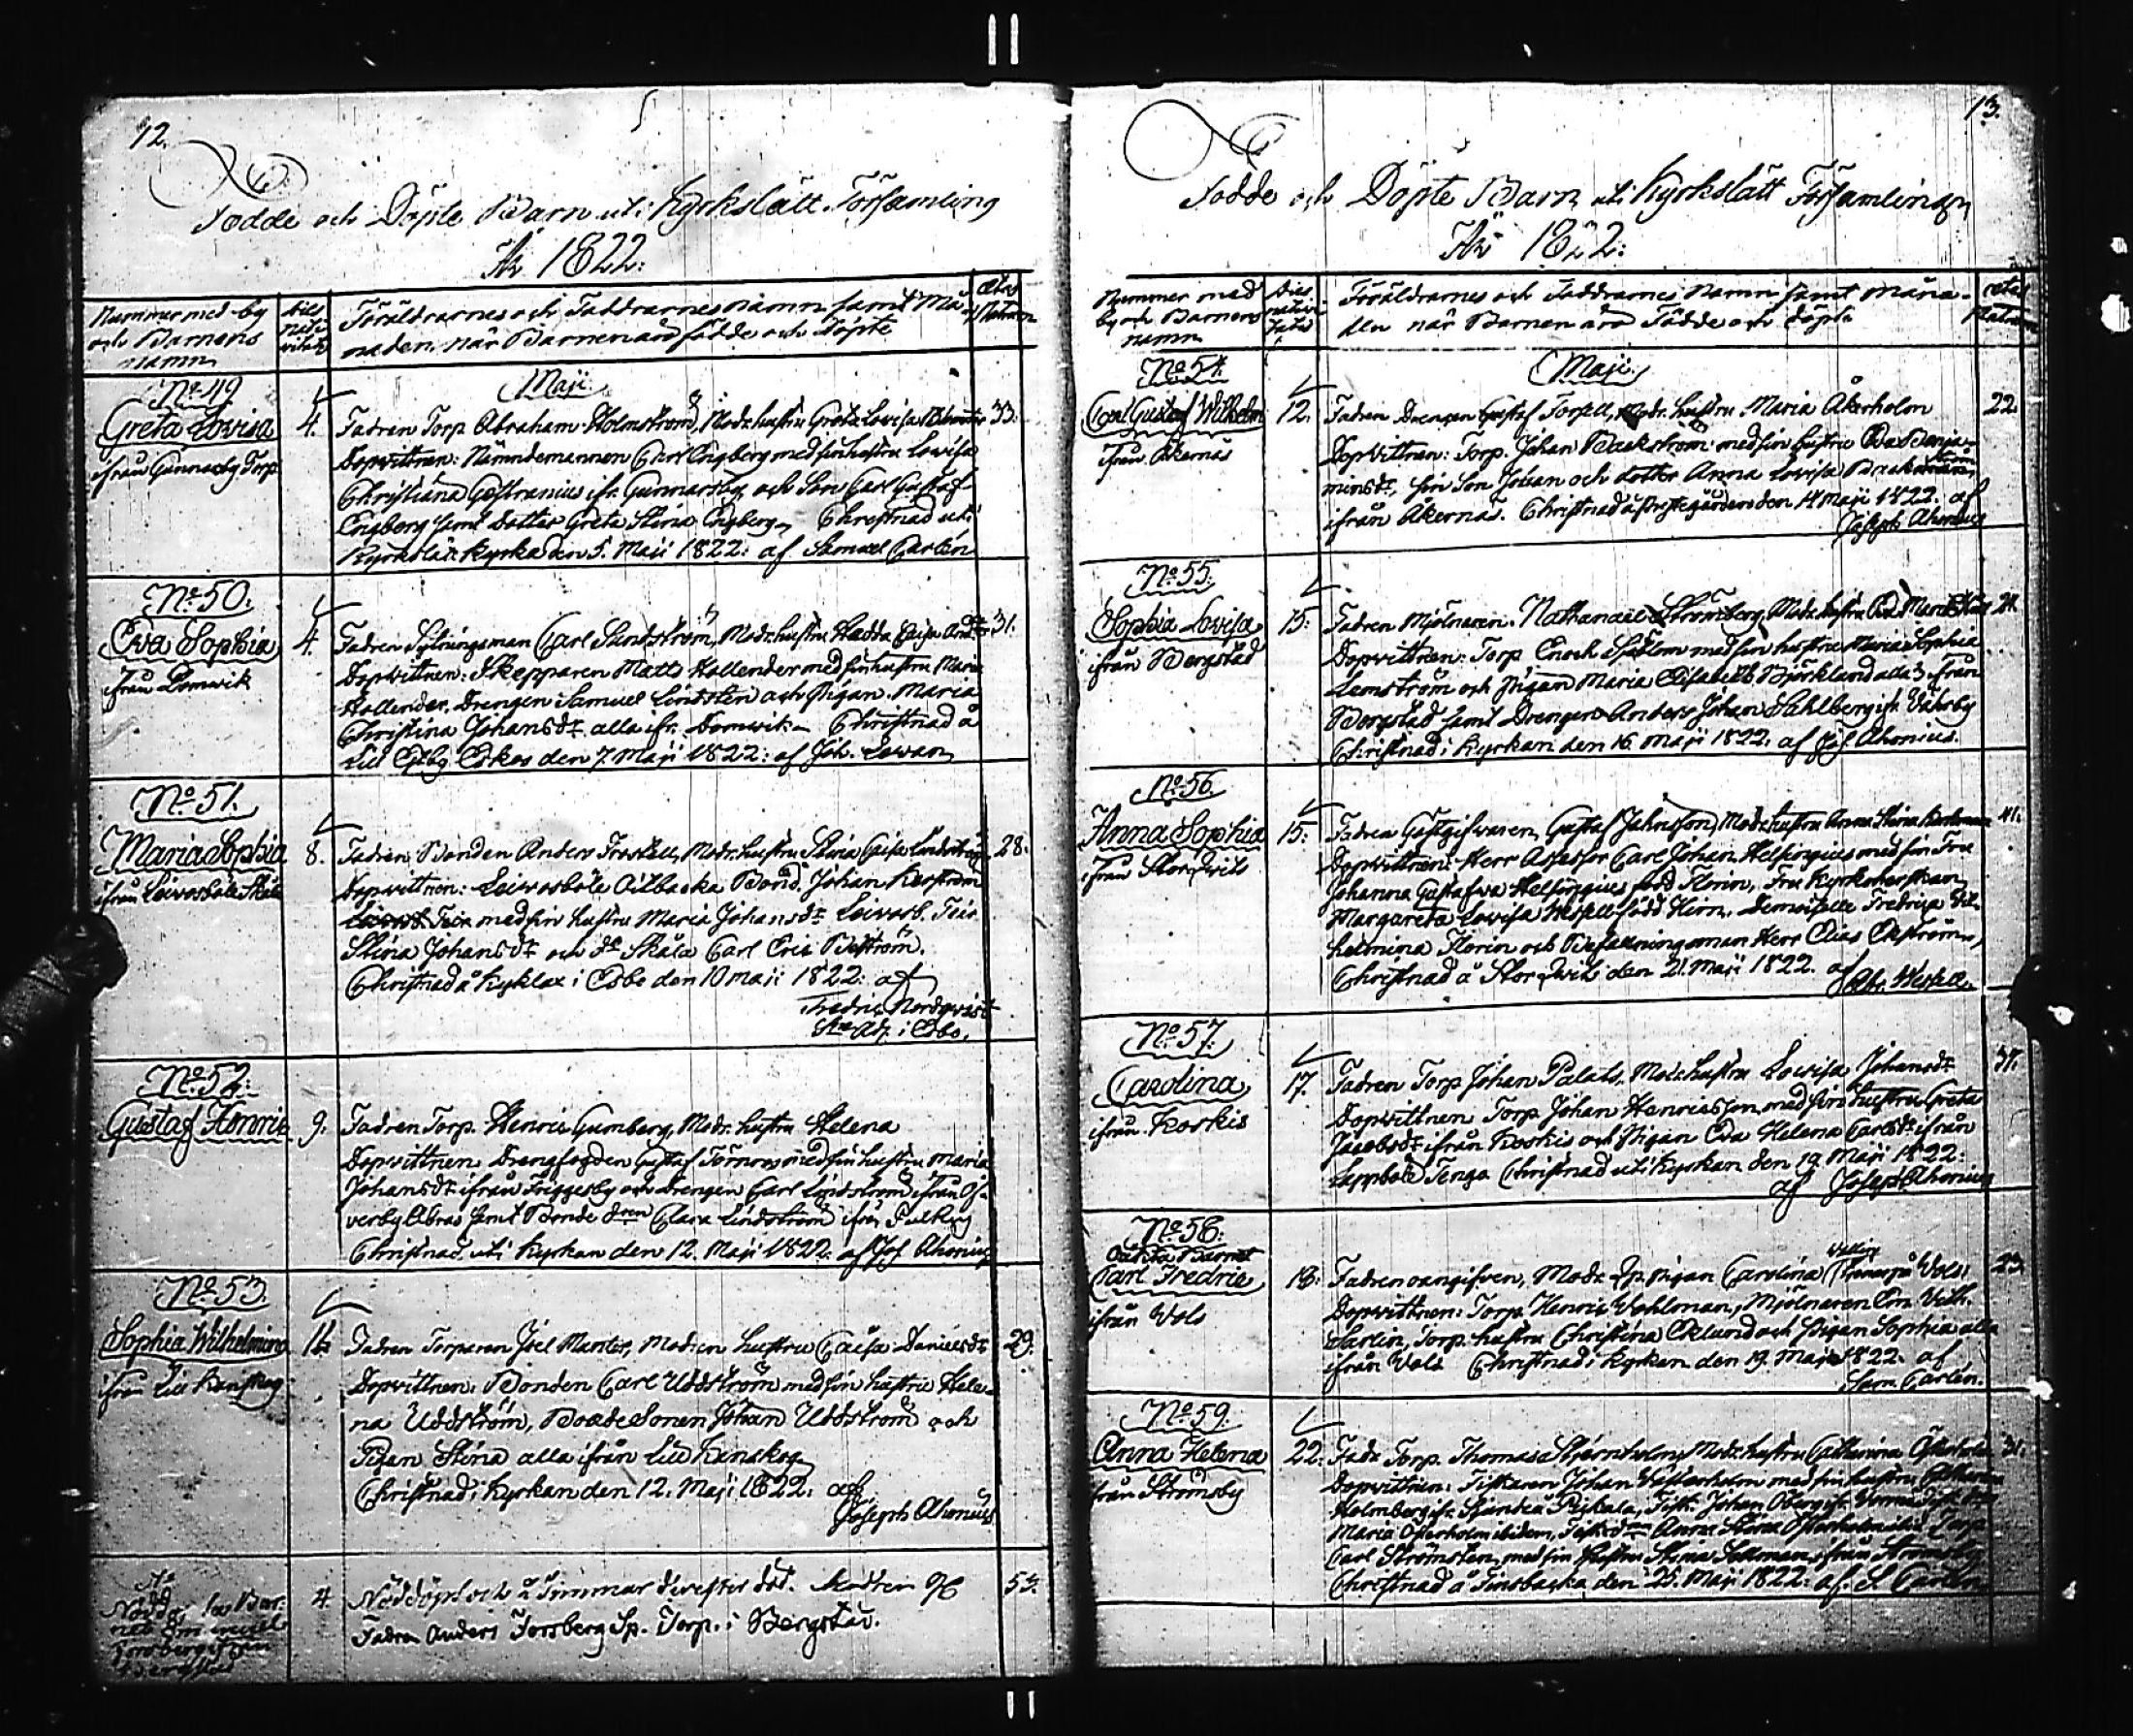 12.
Födde och Döpte Barn uti Kyrkslätt Församling
År 1822:
Nummer med by
och Barnens
namn
dies
nati-
vitatis
Föräldrarnes och Faddrarnes namn samt Må-
naden när Barnen äro födde och döpte
ætas
Matrum
Maji
No 49
Greta Lovisa
ifrån Gunnarsby Torp
4.
Fadren Torp Abraham Holmström, Modr. hustru Greta Lovisa
33.
Dopvittnen: Nämndemannen Engberg med sin hustru Lovisa
Christiana Gestranius ifr. Gunnarsby och Son Carl Gustaf
Engberg samt Dotter Greta Stina Engberg Christnad uti
Kyrkslätt Kyrka den 5. Maji 1822: af Samuel Carlén
No 50.
Eva Sophia
ifrån Domwik
4.
Fadren Carl Sundström, Modr. hustru Hedda Caisa
31.
Dopvittnen: Skepparen Matts Hollender med sin hustru Maria
Hollender. Drengen Samuel Lindsten och Pigan Maria
Christina Johansdr alla ifr. Domwik Christnad å
Lill den 7. Maji 1822: af Joh.
No 51.
Maria Sophia
ifrån Loivosböle Skåla
8.
Fadren Bonden Anders Froskell, Modr. hustru Stina Caisa
28.
Dopvittnen: Loivosböle Oilbacka Bond. Johan
Teir med sin hustru Maria Johansdr Loivosb. Teir
Stina Johansdr och Skåla Carl Eric
Christnad å Kyklax i Esbo den 10 maji 1822: af
Fredric Nordqvist
Adj. i Esbo.
No 52:
Gustaf Henric
9.
Fadren Torp. Henric Gumberg, Modr. hustru Helena
Dopvittnen Drengfogden Gustaf Törnroos med sin hustru Maria
Johansdr ifrån Friggesby och drengen Carl Lindström ifrån Öf-
verby Abras samt Bonde Clara Lindström ifrån
Christnad uti Kyrkan den 12. Maji 1822: af Jos Ahonius
No 53.
Sophia Wilhelmina
ifrån Lill Kanskog
Fadren Torparen Joel Manter, Modren hustru Caisa Danielsdr
29.
Dopvittnen: Bonden Carl Uddström med sin hustru Hele-
na Uddström, Bondesonen Johan Uddström och
Pigan Stina alla ifrån Lill Kanskog
Christnad i Kyrkan den 12. Maji 1822: af
Joseph Ahonius
4.
Nöddöpt och 2 Timmar derefter död. Modren
53.
Fadren Anders Forsberg Sp. Torp. i Bergstad.
13.
Födde och Döpte Barn uti Kyrkslätt Församling
År 1822:
Nummer med
by och Barnens
namn
dies
nativi-
tatis
Föräldrarnes och Faddrarnes Namn samt måna-
den när Barnen äro Födde och döpte
ætas
Matrum
Maji
No 54.
Carl Gustaf Wilhelm
ifrån Åkernäs
12.
Fadren Drengen Gustaf Forsell, Modr. hustru Maria Åkerholm
22.
Dopvittnen: Torp. Johan Backström med sin hustru Eva Benja-
minsdr, sin Son Johan och dotter Anna Lovisa Backström
ifrån Åkernäs. Christnad å Prestegården den 14 maji 1822. af
Joseph Ahonius
No 55.
Sophia Lovisa
ifrån Bergstad
15:
Fadren Mjölnaren Nathanael Strömberg Modr. hustru Eva
21.
Dopvittnen: Torp Enoch med sin hustru Maria Sophia
Lemström och Pigan Maria Elisabeth Björklund alla 3 ifrån
Bergstad samt Drengen Anders Johan Sahlberg ifr.
Christnad i Kyrkan den 16. maji 1822. af Jos. Ahonius.
No 56.
Anna Sophia
ifrån Stor Qvits
15:
Fadren Gästgifvaren Gustaf Johnsson, Modr. hustru Anna Stina
41.
Dopvittnen: Herr Assessor Carl Johan Helsingius med sin Fru
Johanna Gustafva Helsingius född Florin, Fru Kyrkoherdskan
Margareta Lovisa Wessell född Hirn, demoiselle Fredrica Wil-
helmina Florin och Befallningsman Herr Elias Ekström,
Christnad å Stor Qvits den 21. Maji 1822. af
Abr. Wessell.
No 57.
Carolina
ifrån Korkis
17.
Fadren Torp Johan Palats, Modr. hustru Lovisa Johansdr
Dopvittnen Torp Johan Henricsson med sin hustru Greta
Jacobsdr ifrån Korkis och Pigan Eva Helena Carlsdr ifrån
Lappböle Tenga Christnad uti Kyrkan den 19 Maji 1822:
af Joseph Ahonius
No 58:
Oäkta Barnet
Carl Fredric
ifrån Vols
18:
Fadren oangifven, Modr. Pigan Carolina på Vols:
23.
Dopvittnen: Torp. Henric Wohlman, Mjölnaren Em. Vilh.
Sarlin, Torp. hustru Christina Eklund och Pigan Sophia alla
ifrån Vols Christnad i Kyrkan den 19. Maji 1822. af
Sam. Carlén.
No 59.
Anna Helena
från Strömsby
22.
Fadr. Torp. Thomas Stjernholm, Modr. hustru Catharina
31.
Dopvittnen: Fiskaren Johan Wästerholm med sin hustru
Holmberg ifr. Fisk. Johan Öberg ifr.
Maria Österholm ibidem, Anna Stina Österholm ibid. Torp
Carl Strömsten med sin hustru Stina ifrån Strömsby
Christnad å Finsbacka den 25. Maji 1822. af S. Carlén